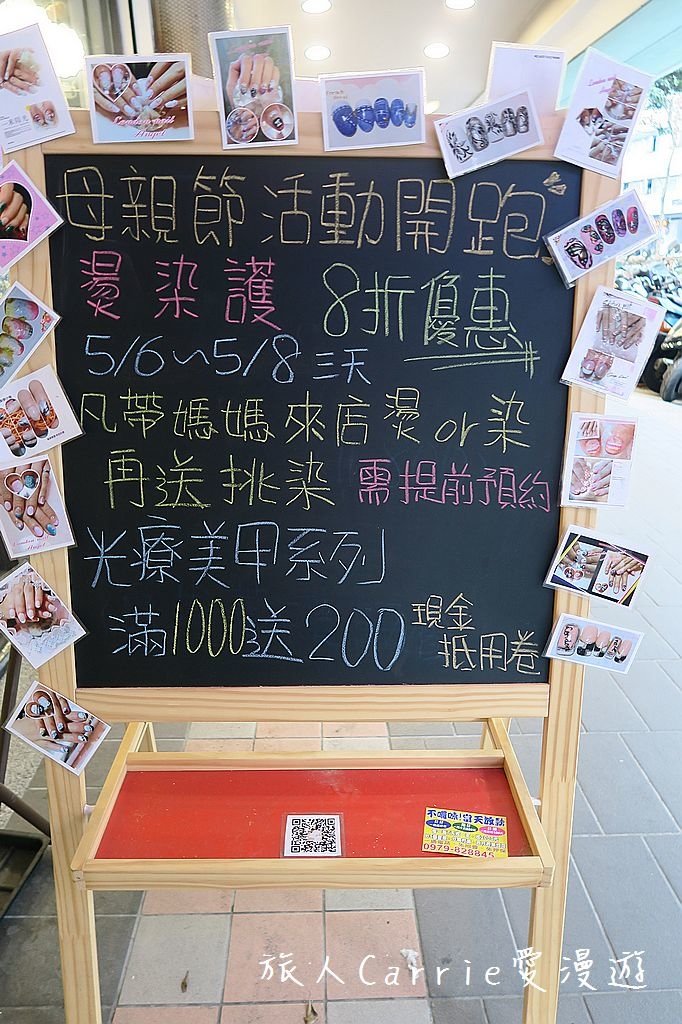 母親節活動開跑
燙染護 8折優惠
5/6~5/8 三天
凡帶媽媽來店燙or染
再送挑染 需提前預約
光療美甲系列
滿1000送200 現金抵用卷
0979-828845
旅人Carrie愛漫遊